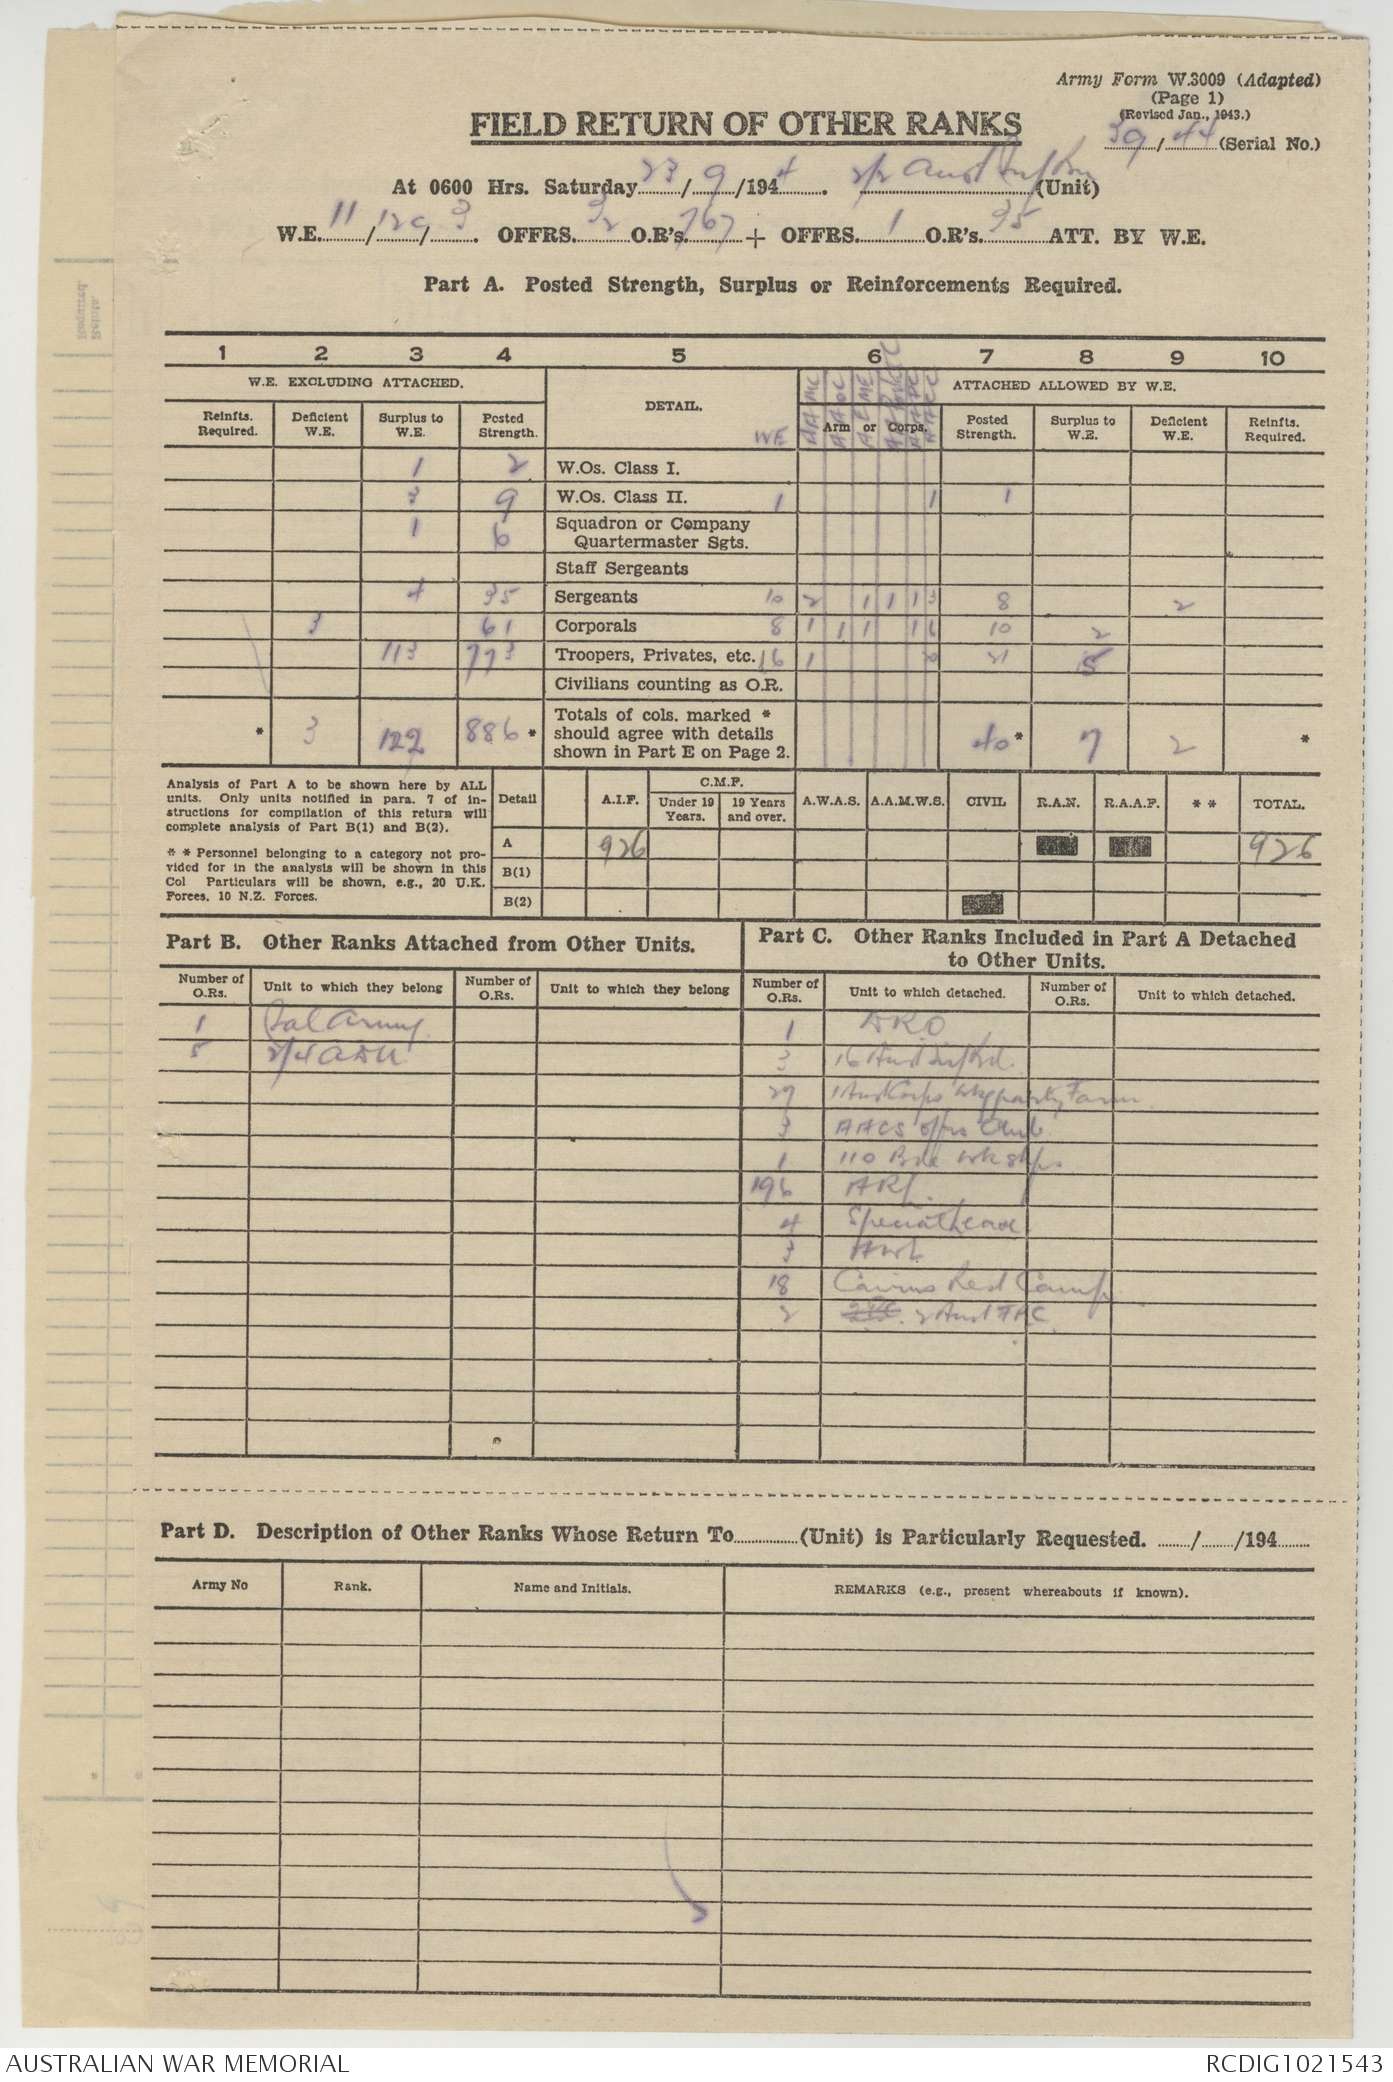 Army Form W.3009 (Adapted)
(Page 1)
(Revised Jan., 1943.)
39/44 (Serial No.)
FIELD RETURN OF OTHER RANKS
At 0600 Hrs. Saturday 23/9/1944. 2/2 Aust Inf Bn (Unit)
W.E. 11/129/3. OFFRS. 32 O.R's. 767 + OFFRS. 1 O.R's. 35 ATT. BY W.E.
Part A. Posted Strength, Surplus or Reinforcements Required.
1 2 3 4 5 6 7 8 9 10
W.E. EXCLUDING ATTACHED. DETAIL. ATTACHED ALLOWED BY W.E.
Reinfts. Required. Deficient W.E. Surplus to W.E. Posted Strength. WE AAMC AAOC AEME AACC Arm or Corps. Posted Strength. Surplus to W.E. Deficient W.E. Reinfts. Required.
1 2 W.Os. Class I.
3 9 W.Os. Class II. 1 1 1
1 6 Squadron or Company Quartermaster Sgts.
Staff Sergeants
4 35 Sergeants 10 2 1 1 1 3 8 2
3 61 Corporals 8 1 1 1 1 6 10 2
113 773 Troopers, Privates, etc. 16 1 20 21 5
Civilians counting as O.R.
* 3 122 886 * Totals of cols. marked * should agree with details shown in Part E on Page 2. 40 * 7 2 *
Analysis of Part A to be shown here by ALL units. Only units notified in para. 7 of instructions for compilation of this return will complete analysis of Part B(1) and B(2).
* * Personnel belonging to a category not provided for in the analysis will be shown in this Col Particulars will be shown, e.g., 20 U.K. Forces, 10 N.Z. Forces.
Detail A.I.F. C.M.F. Under 19 Years. 19 Years and over. A.W.A.S. A.A.M.W.S. CIVIL R.A.N. R.A.A.F. * * TOTAL.
A 926 926
B(1)
B(2)
Part B. Other Ranks Attached from Other Units.
Part C. Other Ranks Included in Part A Detached to Other Units.
Number of O.Rs. Unit to which they belong Number of O.Rs. Unit to which they belong Number of O.Rs. Unit to which detached. Number of O.Rs. Unit to which detached.
1 Sal Army 1 DRO
5 2/4 ADU 3 16 Aust Inf Bde.
29 1 Aust Corps Wkg party Farm
3 AACS offrs Club
1 110 Bde Wkshps
196
4 Special Leave
3 AWL
18 Cairns Rest Camp
2 2 Aust
Part D. Description of Other Ranks Whose Return To (Unit) is Particularly Requested. / /194
Army No Rank. Name and Initials. REMARKS (e.g., present whereabouts if known).
AUSTRALIAN WAR MEMORIAL RCDIG1021543